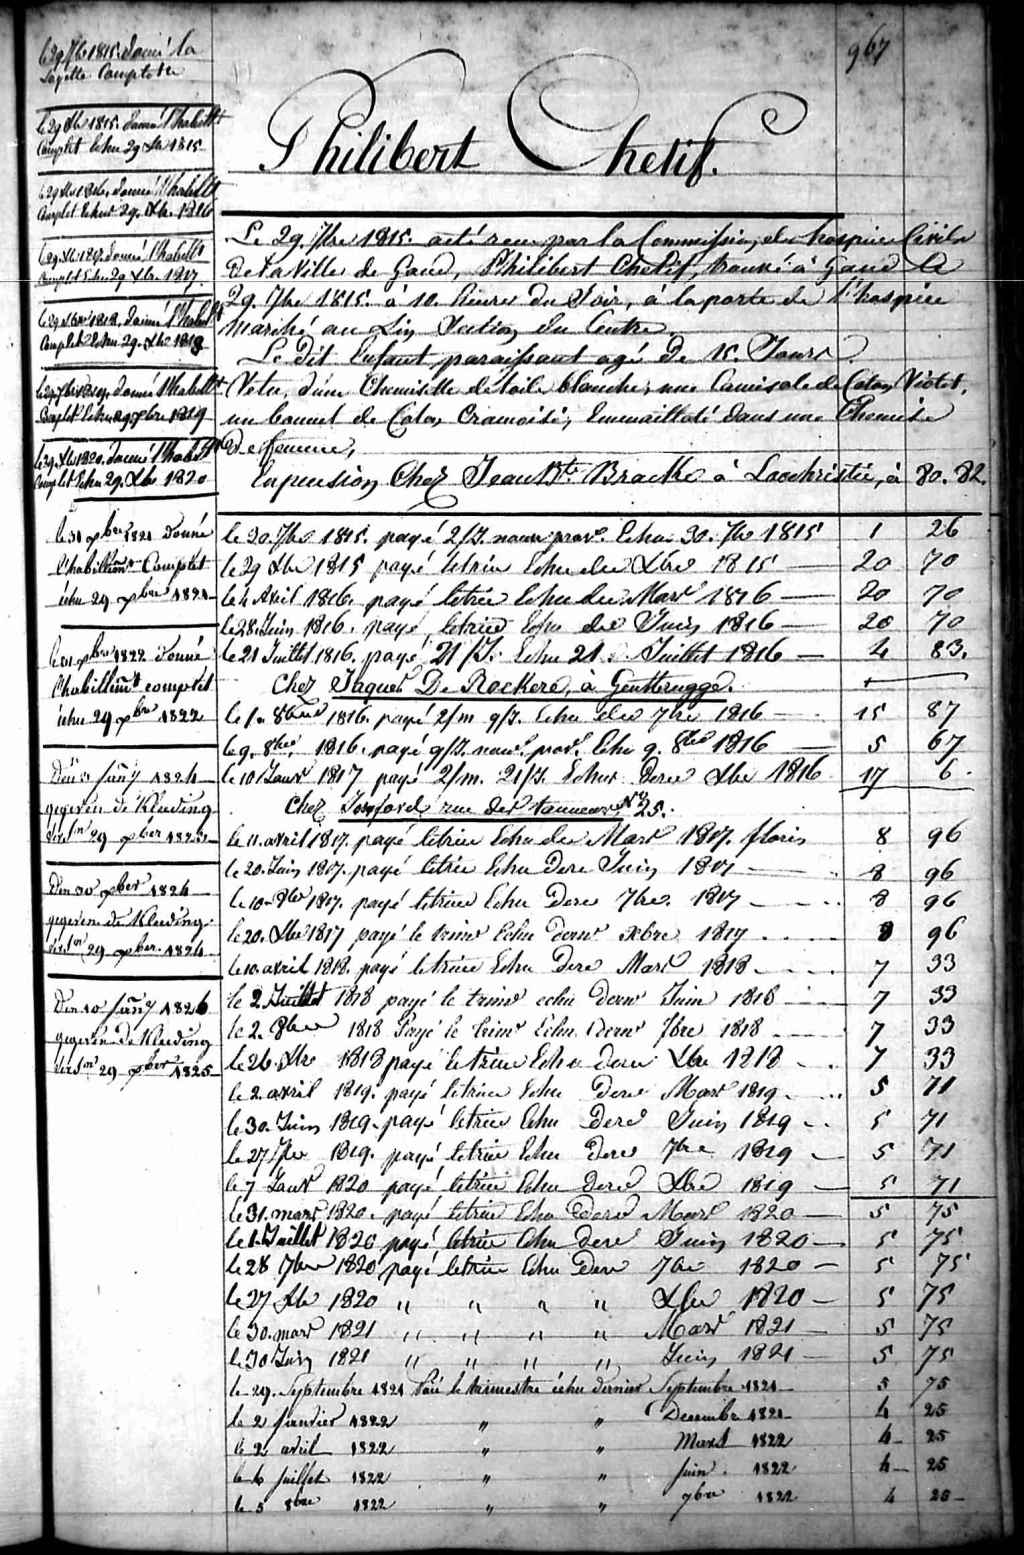 967
Philibert Chetif.
le 29 7bre 1815. donné la
Layette Complette
le 29 Xbre 1815. donné l'habillt
Complet Echu 29 Xbre 1815
le 29 Xbre 1816. donné l'habillt
Complet Echu 29. Xbre. 1816
le 29 Xbre 1817. donné l'habillt
Complet Echu 29 Xbre. 1817.
donné l'habillt
Complet Echu 29. Xbre 1818
donné l'habillt
Complet Echu 29 1819
le 29. Xbre 1820. donné l'habillt
Complet Echu 29. Xbre 1820
le 31 Xbre 1821 donné
l'habillmt Complet
échu 29 Xbre 1821
le 31 Xbre 1822 donné
l'habillmt complet
échu 29 Xbre 1822
Den janry 1824
gegeven de Kleeding
29 Xber 1823
Den 30 Xber 1824
gegeven de Kleeding
29 Xber. 1824
Den 10 janry 1826
gegeven de Kleeding
29 Xber 1825
Le 29. 7bre 1815. a été reçu par la Commission, des hospices Civils
de la Ville de Gand, Philibert Chetif, trouvé à Gand le
29. 7bre 1815. à 10. heures du Soir, à la porte de l'hospice
Marché au Lin, Section, du Centre.
Le Dit Enfant paraissant agé De 15. Jours.
Vetu, d'une Chemisette de toile blanche, une Camisole de Coton Violet,
un bonnet de Coton Cramoisi, Emmailloté dans une Chemise
de femme,
En pension, Chez Jean Bte Bracke à Loochristie, à 80. 82.
le 30. 7bre 1815. payé 2/J. nourr. prov. Echu 30. 7bre 1815 1 26
le 29 Xbre 1815 payé le trim Echu der Xbre 1815 20 70
le 4 Avril 1816. payé le trim Echu der Mars 1816 20 70
le 28. Juin 1816. payé, le trim Echu der Juin 1816 20 70
le 21 Juillet 1816. payé 21/J. Echu 21. Juillet 1816 4 83.
Chez Jaques De Rockere, à Gentbrugge.
le 1. 8bre 1816. payé 2/m 9/J. Echu der 7bre 1816 15 87
le 9. 8bre. 1816. payé 9/J. nour. prov. Echu 9. 8bre 1816 5 67
le 10 Janv 1817 payé 2/m. 21/J. Echu Dere Xbre 1816 17 6
Chez rue des tanneurs, No 25.
le 11. avril 1817. payé le trim Echu der Mars 1817. florins 8 96
le 20. Juin 1817. payé le trim Echu Dere Juin 1817 8 96
le 10. 8bre 1817. payé le trim Echu Dere 7bre. 1817 8 96
le 20. Xbre 1817 payé le trimr Echu dernr Xbre 1817 8 96
le 10. avril 1818. payé le trim Echu Dere Mars 1818 7 33
le 2 Juillet 1818 payé le trimr echu dernr Juin 1818 7 33
le 2. 8bre 1818 Payé le trimr Echu dernr 7bre 1818 7 33
le 26. Xbre 1818 payé le trim Echu dere Xbre 1818 7 33
le 2. avril 1819. payé le trim Echu Dere Mars 1819 5 71
le 30. Juin 1819. payé le trim Echu Dere Juin 1819 5 71
le 27 7bre 1819. payé le trim Echu Dere 7bre 1819 5 71
le 7 Janv 1820 payé le trim Echu dere Xbre 1819 5 71
le 31. mars 1820. payé le trim Echu Dere Mars 1820 5 75
le 1. Juillet 1820 payé le trim Echu Dere Juin 1820 5 75
le 28 7bre 1820 payé le trim Echu Dere 7bre 1820 5 75
le 27 Xbre 1820 " " " " Xbre 1820 5 75
le 30. mars 1821 " " " " Mars 1821 5 75
le 30 Juin 1821 " " " " Juin 1821 5 75
le 29. Septembre 1821 Païé le trimestre échu dernier Septembre 1821 5 75
le 2 janvier 1822 " " Decembre 1821 4 25
le 2 avril 1822 " " Mars 1822 4 25
le 6 juillet 1822 " " juin. 1822 4 25
le 5 8bre 1822 " " 7bre 1822 4 25